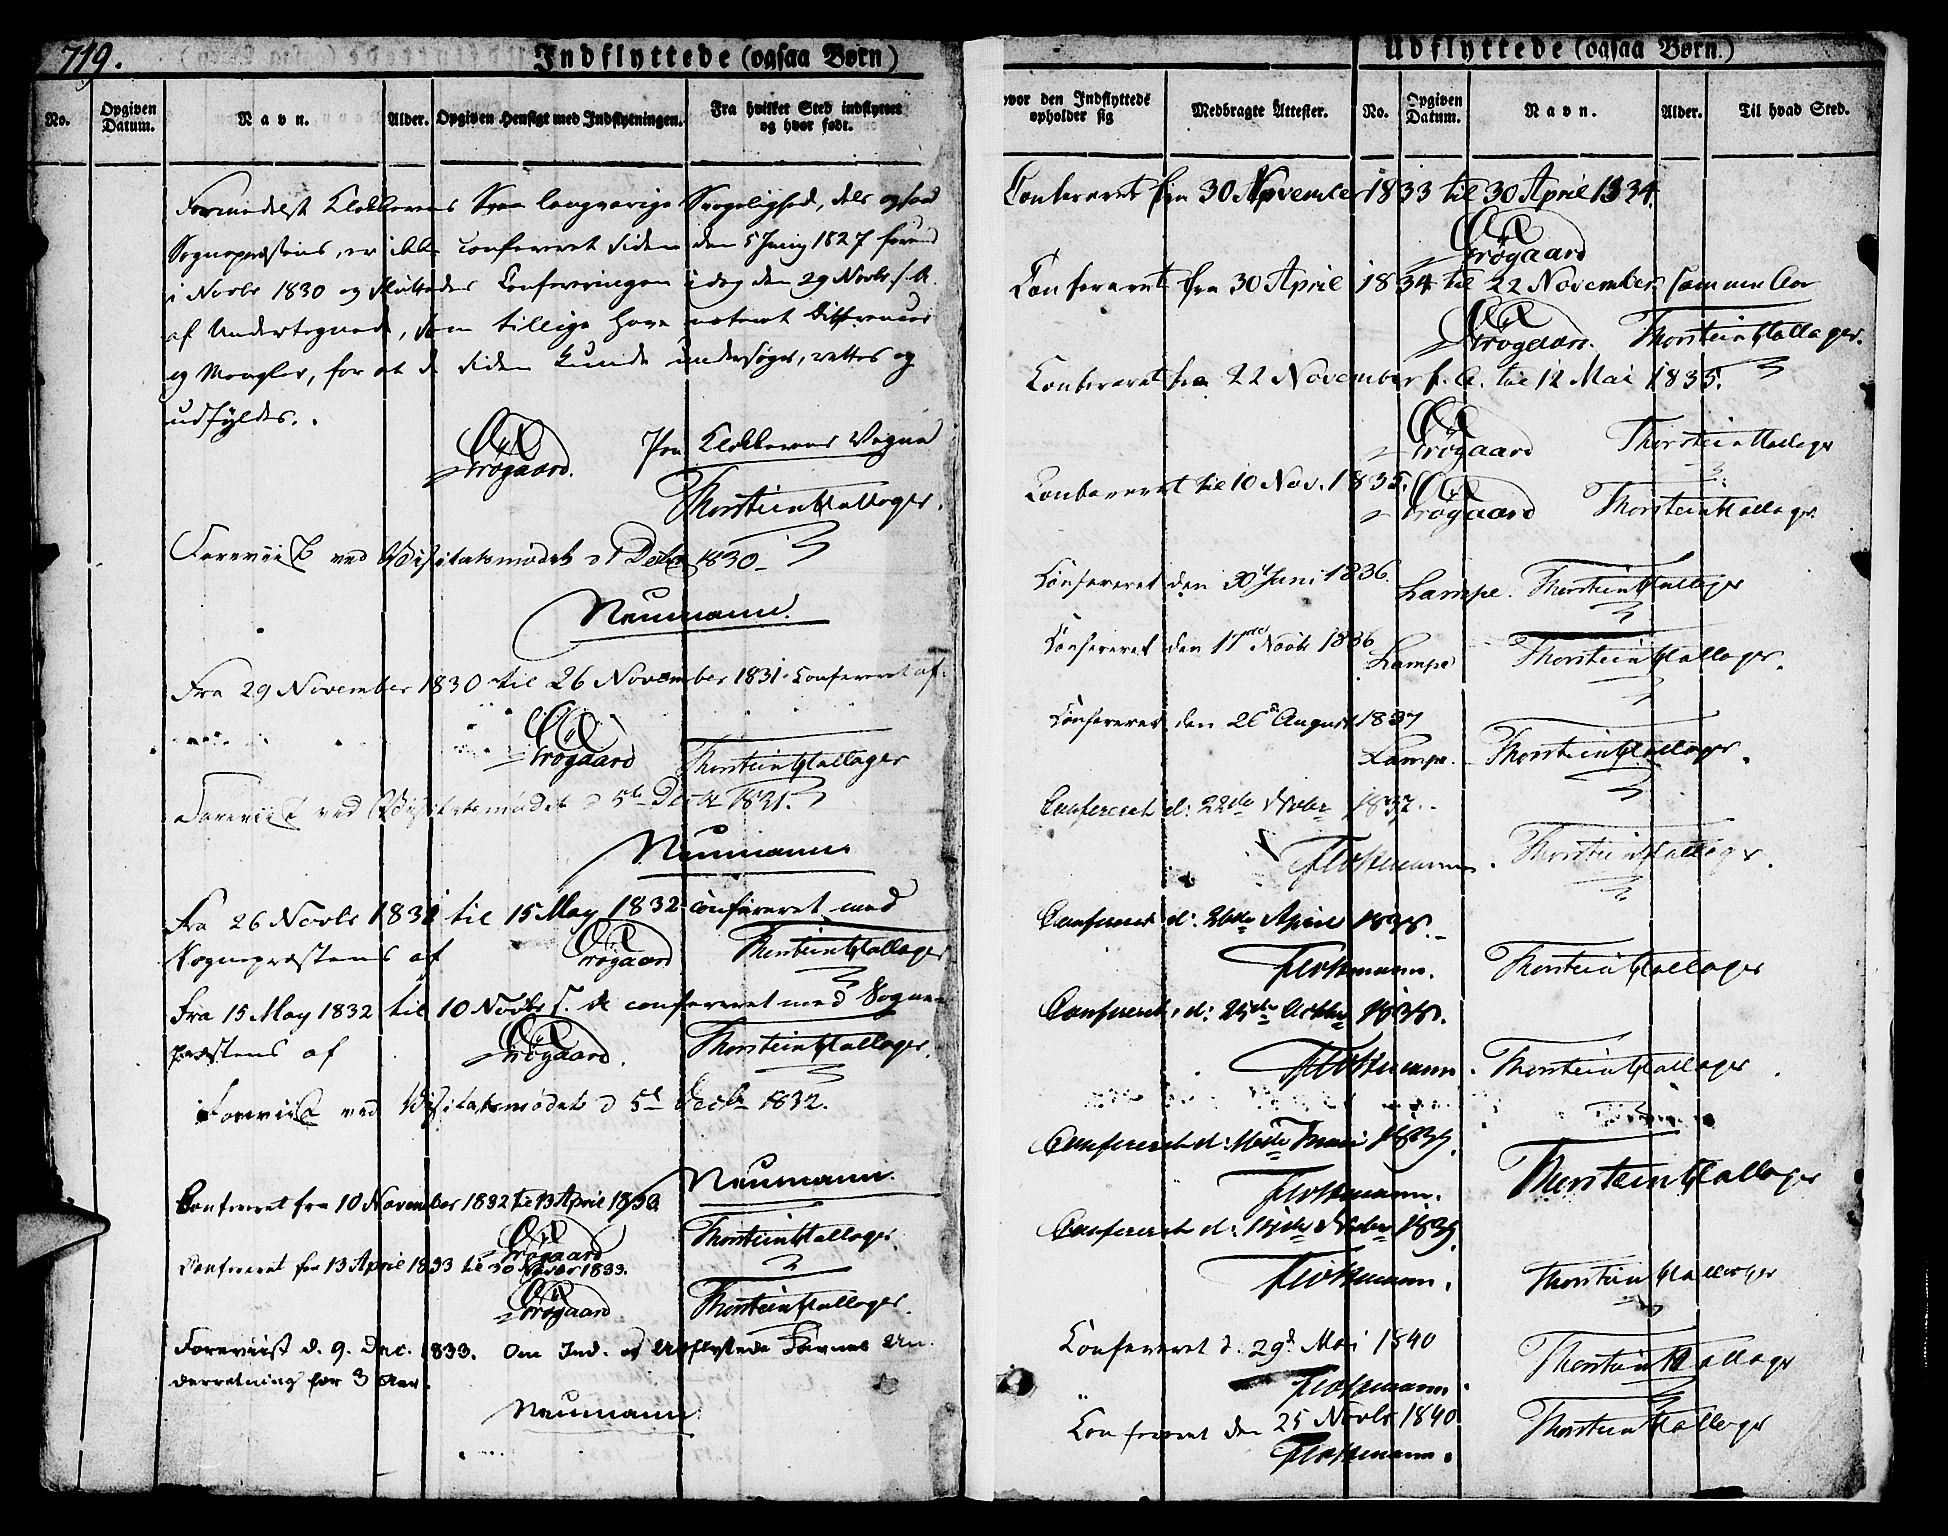 719.
Indflyttede (ogsaa Børn)
No.
Opgiven Datum.
Navn.
Alder.
Opgiven Hensigt med Indflytningen.
Fra hvilket Sted indflyttet og hvor født.
Formedelst Klokkerens langvarige Svagelighed, dels ogsaa
Sognepræstens, er ikke confereret siden den 5 Juny 1827 førend
i Novbr 1830 og sluttedes Confereringen i dag den 29 Novbr. s. A.
af Undertegnede, som tillige have noteret Differencer
og Mangler, for at de siden kunde undersøges, rettes og
udfyldes.
Frøgaard.
Paa Klokkerens Vegne
Thorstein Hallager.
Foreviist ved Visitatsmødet d 1 Decbr 1830
Neumann.
Fra 29 November 1830 til 26 November 1831 confereret af
Frøgaard Thorstein Hallager
Foreviist ved Visitatsmødet d 5te Decbr 1831.
Neumann
Fra 26 Novbr 1831 til 15 May 1832 confereret med
Sognepræstens af Frøgaard Thorstein Hallager
Fra 15 May 1832 til 10 Novbr s. A. confereret med Sogne-
præstens af Frøgaard. Thorstein Hallager.
Foreviist ved Visitatsmødet d 5t Decbr 1832.
Neumann.
Confereret fra 10 November 1832 til 13 April 1833.
Frøgaard Thorstein Hallager.
Confereret fra 13 April 1833 til 30 Novbr 1833.
Frøgaard Thorstein Hallager.
Foreviist d. 9. Dec. 1833. Om Ind. og Udflyttede savnes Un-
derretning for 3 Aar.
Neumann
Udflyttede (ogsaa Børn.)
hvor den Indflyttede opholder sig
Medbragte Attester.
No.
Opgiven Datum.
Navn.
Alder.
Til hvad Sted.
Confereret fra 30 November 1833 til 30 April 1834.
Frøgaard
Confereret fra 30 April 1834 til 22 November samme Aar
Frøgaard. Thorstein Hallager.
Confereret fra 22 November f. A. til 12 Mai 1835.
Frøgaard Thorstein Hallager
Confereret til 10 Nov. 1835.
Frøgaard Thorstein Hallager.
Confereret den 30t Juni 1836.
Lampe. Thorstein Hallager
Confereret den 17de Novbr 1836
Lampe Thorstein Hallager.
Confereret den 26d August 1837
Lampe. Thorstein Hallager.
Confereret d: 22de Novbr 1837.
Flottmann. Thorstein Hallager.
Confereret d: 26de April 1838.
Flottmann. Thorstein Hallager
Confereret d: 25de Octbr 1838.
Flottmann. Thorstein Hallager
Confereret d: Juni 1839.
Flottmann. Thorstein Hallager
Confereret d: Novbr 1839.
Flottmann. Thorstein Hallager
Confereret d. 29d Mai 1840
Flottmann. Thorstein Hallager
Confereret den 25 Novbr 1840
Flottmann. Thorstein Hallager